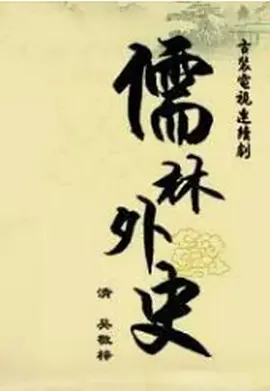 古装電视连续剧
儒林外史
清 吴敬梓